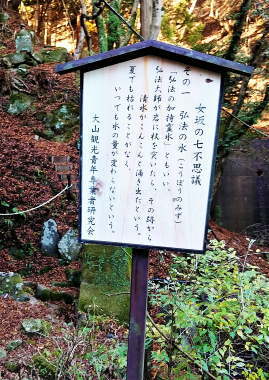 女坂の七不思議
その一　弘法の水（こうぼうのみず）
「弘法の加持霊水」ともいい、
弘法大師が岩に杖を突いたら、その跡から
清水がこんこんと湧き出たという。
夏でも枯れることがなく、
いつでも水の量が変わらないという。
大山観光青年専業者研究会